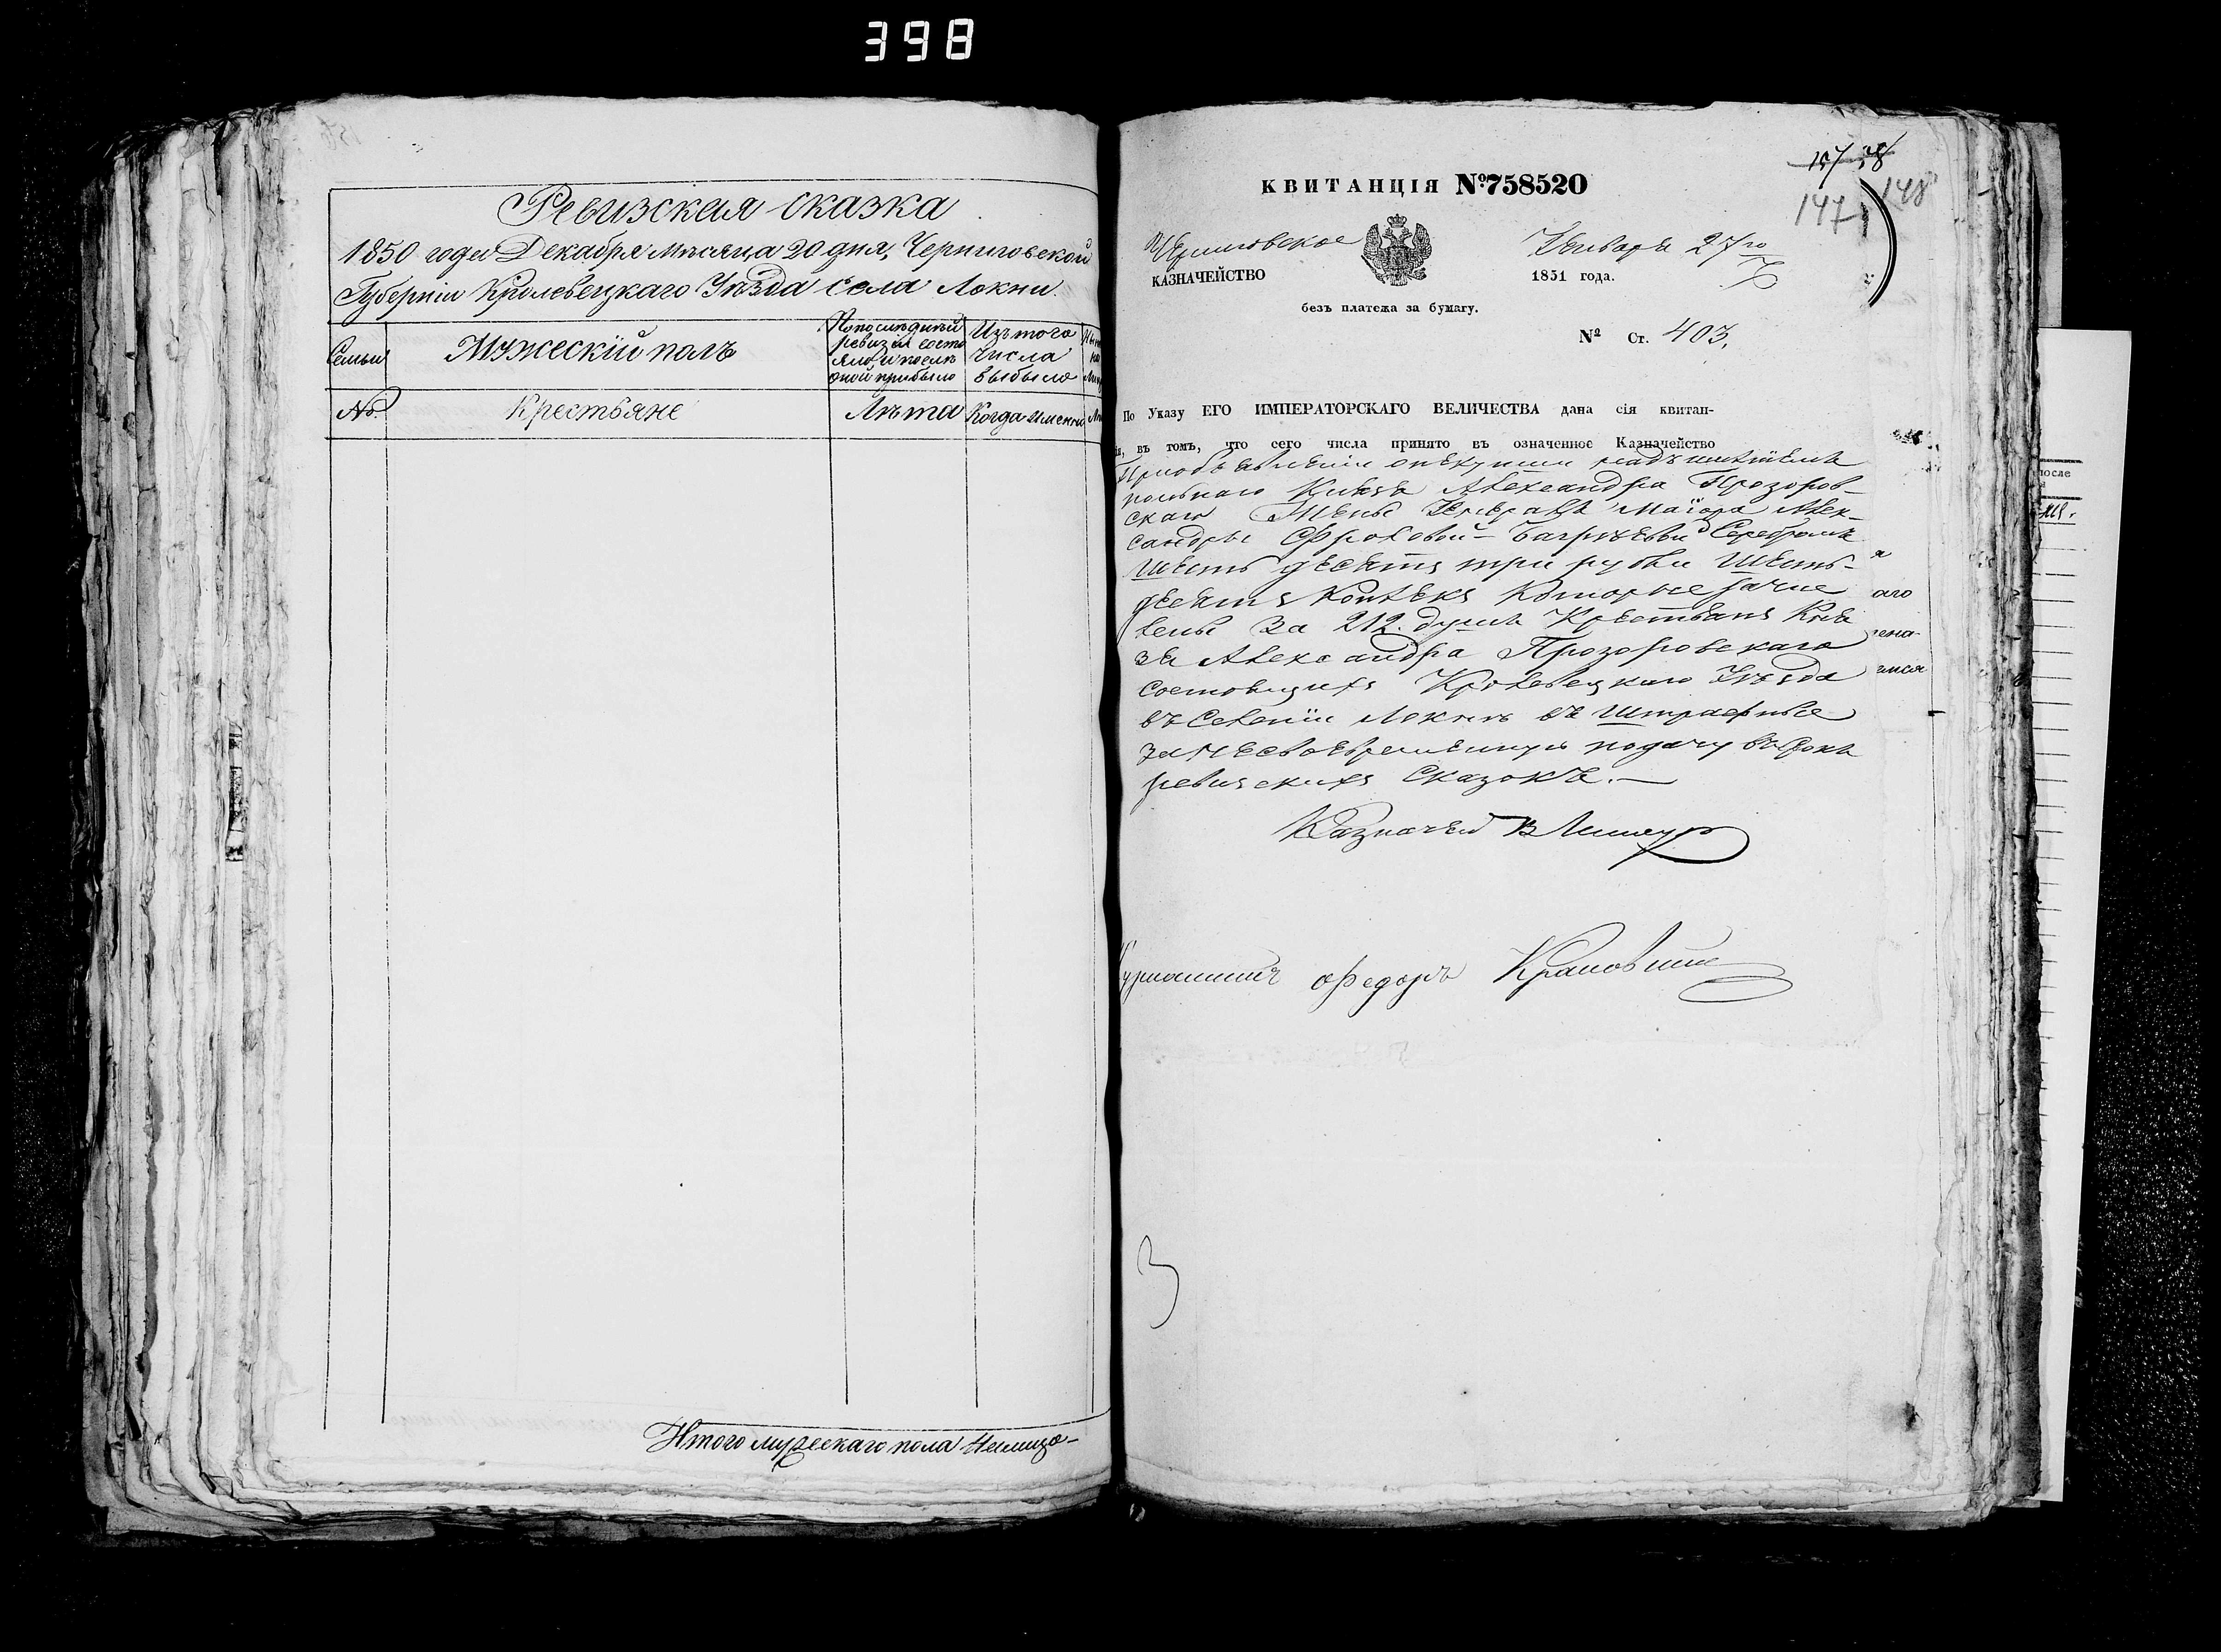 398
Ревизская сказка
1850 года Декабря мѣсяца 20 дня, Черниговской
Губерніи Кролевецкаго Уѣзда села Локни.
Семьи
Мужескій полъ
По последнѣй
ревизіи состо
яло и послѣ
оной прибыло
Изъ того
числа
выбыло
№.
Крестьяне
Лѣта
Когда именно
Итого мужескаго пола налицо-
157 58
147
148
КВИТАНЦІЯ №758520
Черниговское
КАЗНАЧЕЙСТВО
Января 27го
1851 года.
безъ платежа за бумагу.
№ Ст. 403.
По Указу ЕГО ИМПЕРАТОРСКАГО ВЕЛИЧЕСТВА дана сія квитан-
въ томъ, что сего числа принято въ означенное Казначейство
При объявленіи опекунши надъ имѣніемъ
Князя Александра Прозоров-
скаго Жены Генералъ Маіора Алек-
сандры Фроловой-Багрѣевой Серебромъ
Шесть десятъ три рубли Шесть-
десятъ Копѣекъ Которые зачис
лены За 212. душъ Крестьянъ Кня
зя Александра Прозоровскаго
Состоящихъ Кролевецкаго Уѣзда
въ Селеніи Локнѣ въ Штрафные
за несвоевременную подачу въ срокъ
ревизскихъ Сказокъ.—
Казначей
Федоръ
аго
после